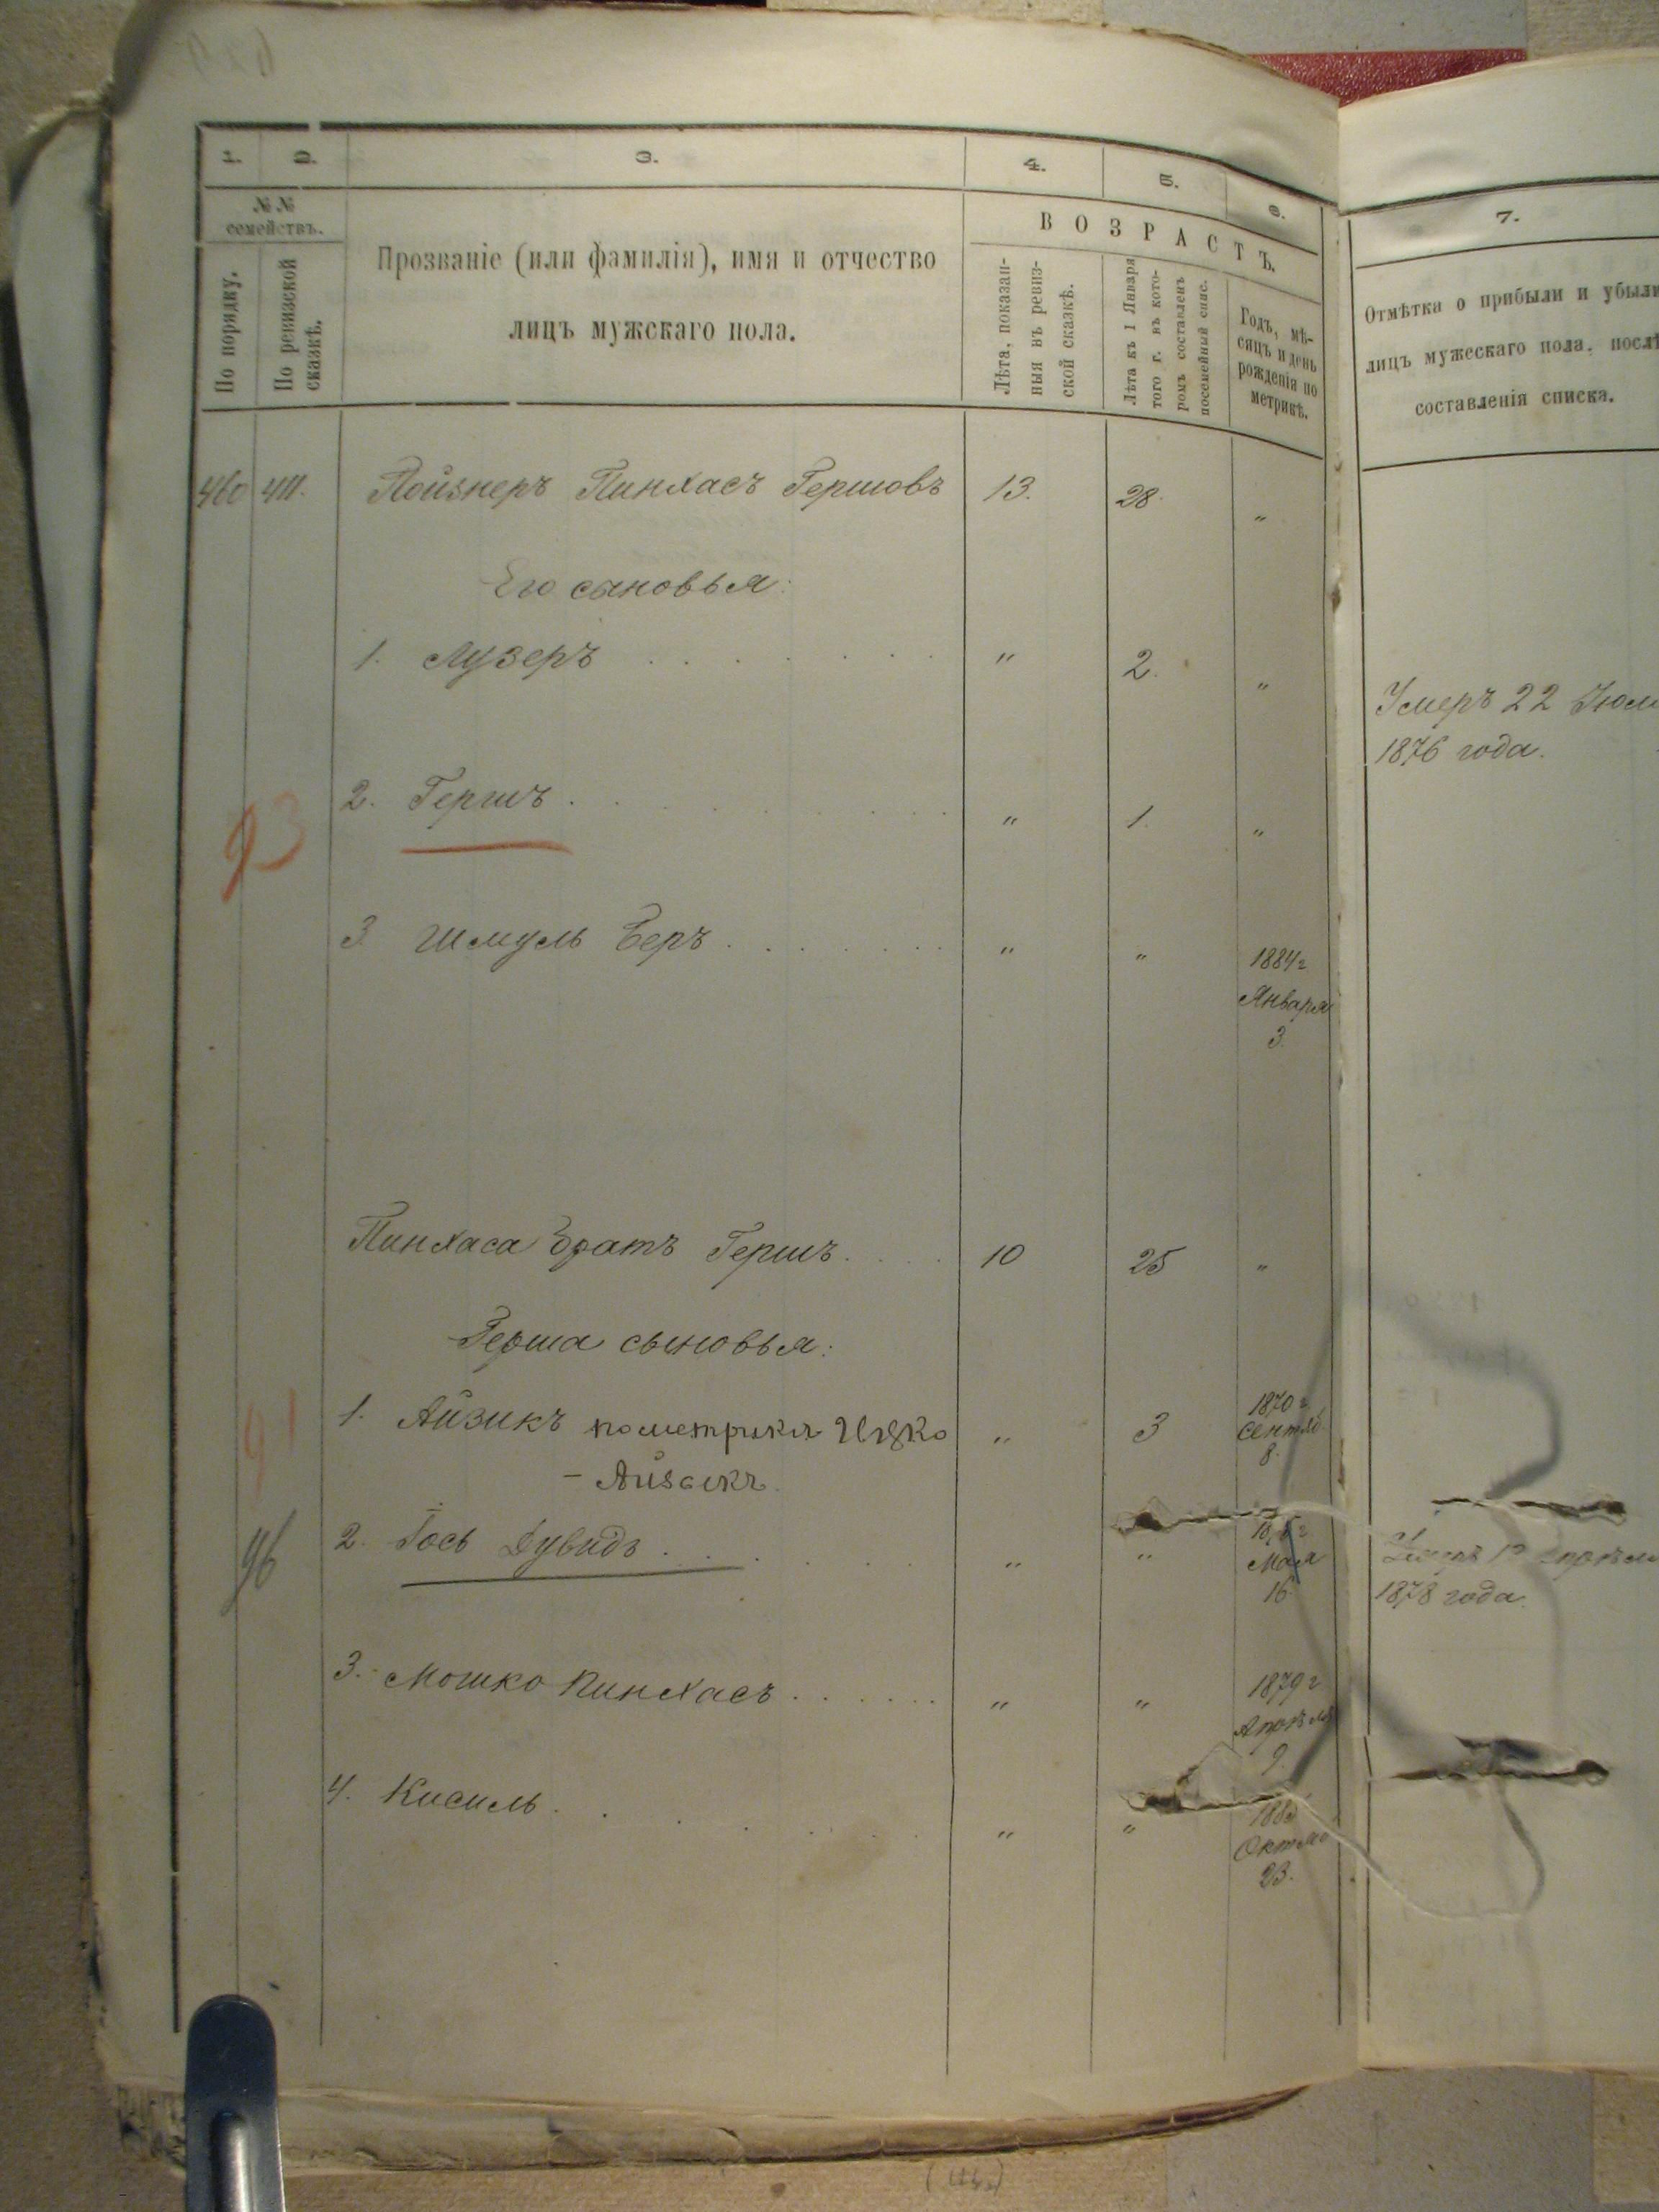 1. 2. 3. 4. 5. 6. 7.
№ №
семействъ.
По порядку.
По ревизской
сказкѣ.
Прозваніе (или фамилія), имя и отчество
лицъ мужскаго пола.
ВОЗРАСТЪ.
Лѣта, показан-
ныя въ ревиз-
ской сказкѣ.
Лѣта къ 1 Января
того г. въ кото-
ромъ составленъ
посемейный спис.
Годъ, мѣ-
сяцъ и день
рожденія по
метрикѣ.
Отмѣтка о прибыли и убыли
лицъ мужескаго пола, послѣ
составленія списка.
460 411. Пойзнеръ Пинхасъ Гершовъ 13. 28. "
Его сыновья:
1. Лузеръ " 2. "
Умеръ 22 Іюл
1876 года.
93 2. Гершъ " 1. "
3 Шмуль Беръ " " 1884 г
Января
3.
Пинхаса братъ Гершъ 10 25 "
Герша сыновья:
91 1. Айзикъ по метрики Ицко " 3 1870 г
Сентяб
8.
- Айзикъ.
96 2. Іось Дувидъ " "
Мая
16
1878 года.
3. Мошко Пинхасъ " " 1879 г
Апрѣля
9.
4. Кисиль " "
Октяб
23.